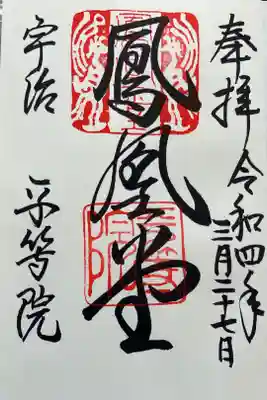 奉拝 令和四年
三月二十七日
鳳凰堂
宇治 平等院